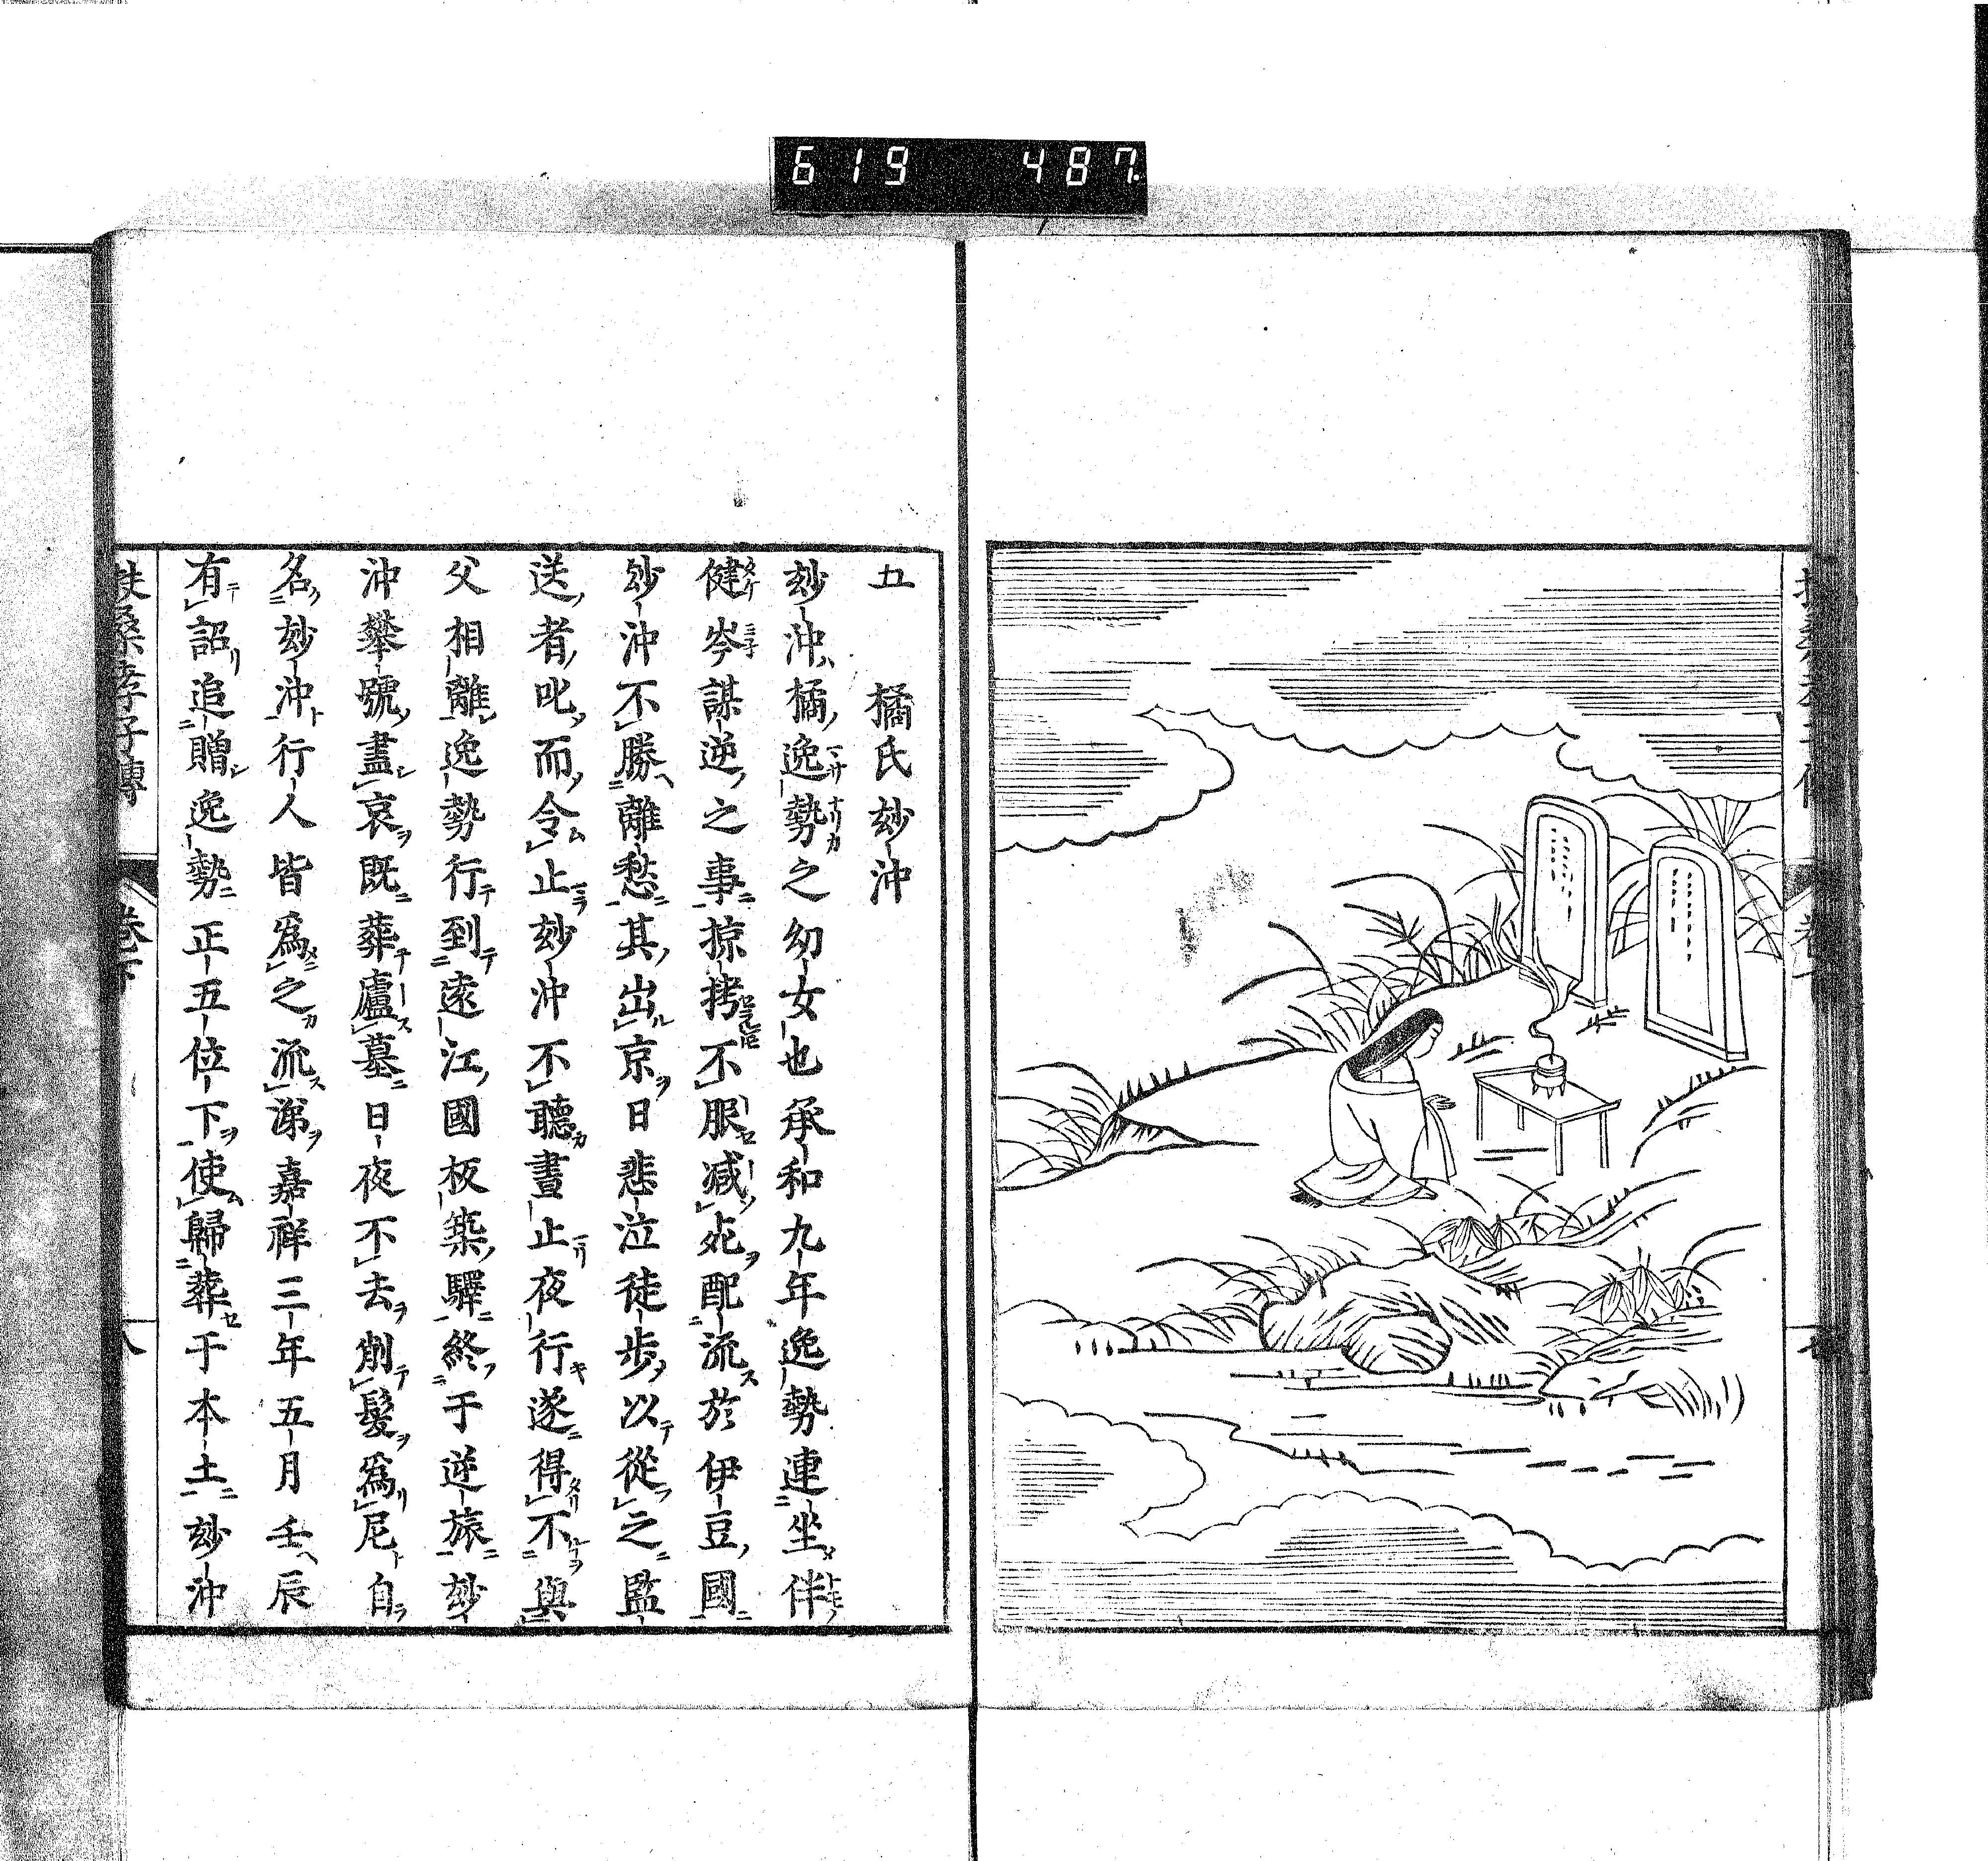 619 487
五 橘氏玅沖
玅沖橘逸勢之幼女也承和九年逸勢連坐伴
健岑謀逆之事掠拷不服減死配流於伊豆國
玅沖不勝離愁其出京日悲泣徒步以從之監
送者叱而令止玅沖不聽晝止夜行遂得不與
父相離逸勢行到遠江國板築驛終于逆旅玅
沖攀號盡哀既葬廬墓日夜不去削髮爲尼自
名玅沖行人皆爲之流涕嘉祥三年五月壬辰
有詔追贈逸勢正五位下使歸葬于本土玅沖
扶桑孝子傳 卷下 八